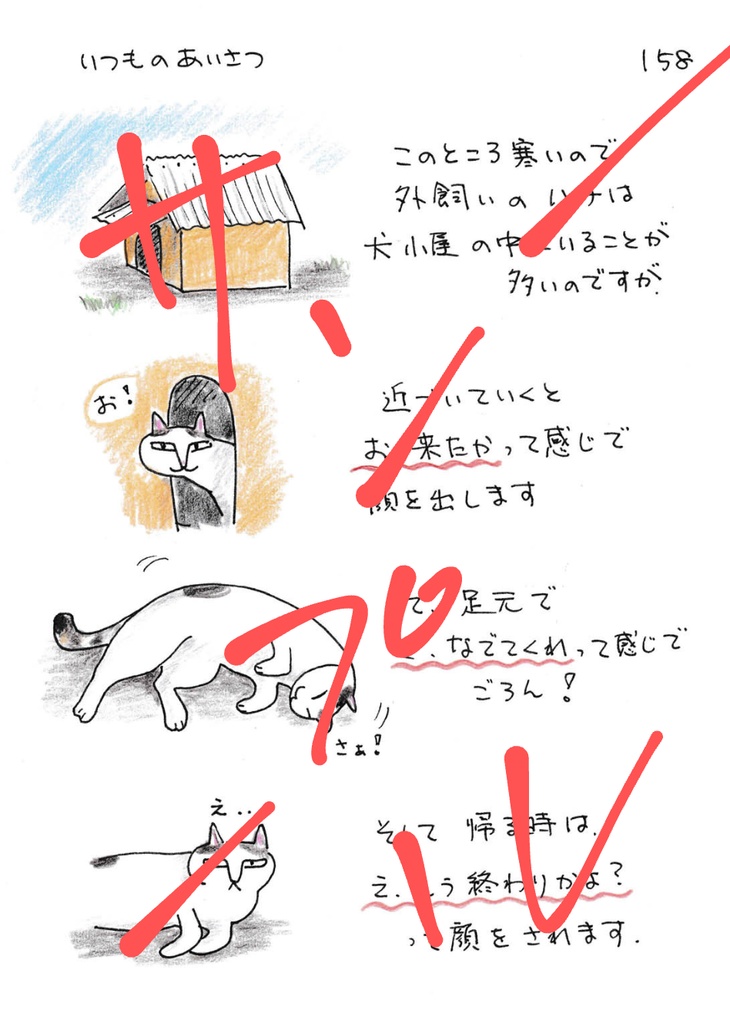 いつものあいさつ
158
このところ寒いので
外飼いの は
犬小屋の中にいることが
多いのですが、
お!
近づいていくと
お、来たかって感じで
顔を出します
足元で
なでてくれって感じで
ごろん!
さぁ!
え‥
そして 帰る時は、
え、もう終わりかよ?
って顔をされます.
サンプル